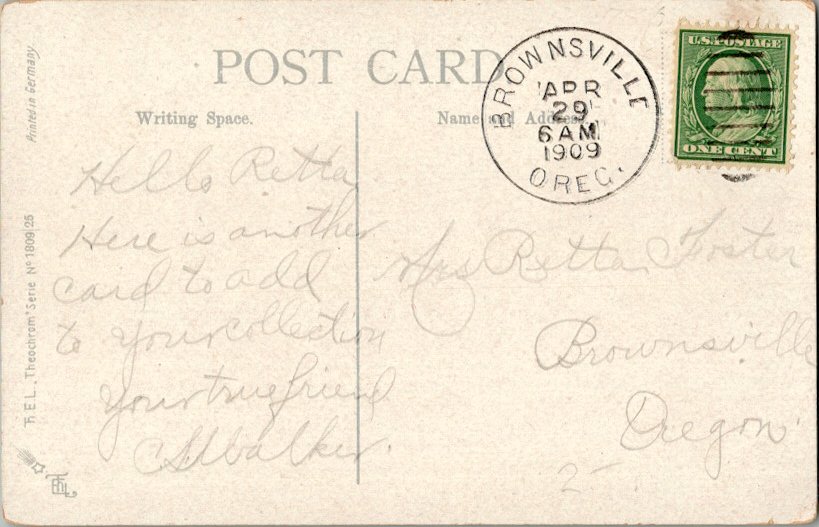 POST CARD
Writing Space.
Name and Address.
BROWNSVILLE
APR
29
6 AM
1909
OREG.
U.S. POSTAGE
ONE CENT
Printed in Germany
T.H.E.L. "Theochrom" Serie No 1809/25
Hello Retta
Here is another
card to add
to your collection
your true friend
Walker.
Mrs Retta Foster
Brownsville
Oregon
2-